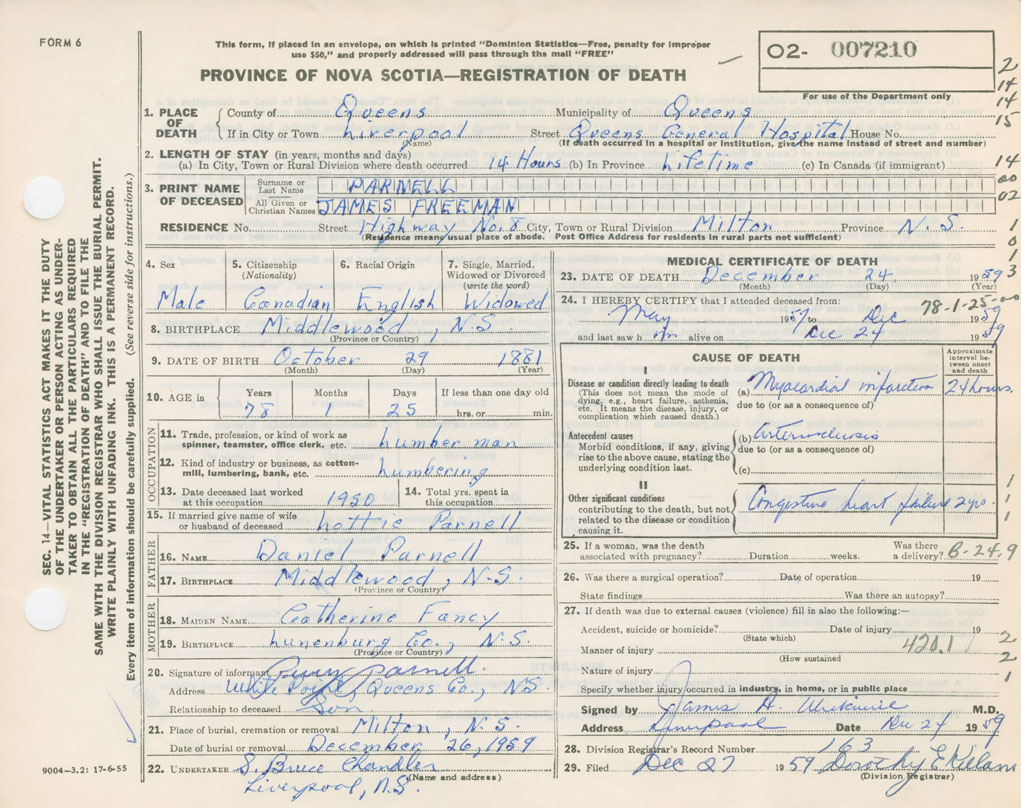 FORM 6
This form, if placed in an envelope, on which is printed "Dominion Statistics—Free, penalty for improper
use $50," and properly addressed will pass through the mail "FREE"
PROVINCE OF NOVA SCOTIA—REGISTRATION OF DEATH
02- 007210
For use of the Department only
2
14
14
15
14
00
02
1
0
1
3
SEC. 14—VITAL STATISTICS ACT MAKES IT THE DUTY
OF THE UNDERTAKER OR PERSON ACTING AS UNDER-
TAKER TO OBTAIN ALL THE PARTICULARS REQUIRED
IN THE "REGISTRATION OF DEATH" AND TO FILE THE
SAME WITH THE DIVISION REGISTRAR WHO SHALL ISSUE THE BURIAL PERMIT.
WRITE PLAINLY WITH UNFADING INK. THIS IS A PERMANENT RECORD.
Every item of information should be carefully supplied. (See reverse side for instructions.)
1. PLACE OF DEATH
County of Queens Municipality of Queens
If in City or Town Liverpool Street Queens General Hospital House No.
(Name) (If death occurred in a hospital or institution, give the name instead of street and number)
2. LENGTH OF STAY (in years, months and days)
(a) In City, Town or Rural Division where death occurred 14 Hours (b) In Province Lifetime (c) In Canada (if immigrant)
3. PRINT NAME OF DECEASED
Surname or Last Name PARNELL
All Given or Christian Names JAMES FREEMAN
RESIDENCE No. Street Highway No. 8 City, Town or Rural Division Milton Province N.S.
(Residence means usual place of abode. Post Office Address for residents in rural parts not sufficient)
4. Sex Male
5. Citizenship (Nationality) Canadian
6. Racial Origin English
7. Single, Married, Widowed or Divorced (write the word) Widowed
8. BIRTHPLACE Middlewood, N.S
(Province or Country)
9. DATE OF BIRTH October 29 1881
(Month) (Day) (Year)
10. AGE in Years 78 Months 1 Days 25 If less than one day old hrs. or min.
OCCUPATION
11. Trade, profession, or kind of work as spinner, teamster, office clerk, etc. Lumber man
12. Kind of industry or business, as cotton-mill, lumbering, bank, etc. Lumbering
13. Date deceased last worked at this occupation 1950
14. Total yrs. spent in this occupation
15. If married give name of wife or husband of deceased Lottie Parnell
FATHER
16. NAME Daniel Parnell
17. BIRTHPLACE Middlewood, N.S.
(Province or Country)
MOTHER
18. MAIDEN NAME Catherine Fancy
19. BIRTHPLACE Lunenburg Co., N.S.
(Province or Country)
20. Signature of informant Parnell.
Address White Point, Queens Co., N.S.
Relationship to deceased Son
21. Place of burial, cremation or removal Milton, N.S.
Date of burial or removal December 26, 1959
22. UNDERTAKER S. Bruce Chandler
(Name and address)
Liverpool, N.S.
9004-3.2: 17-6-55
MEDICAL CERTIFICATE OF DEATH
23. DATE OF DEATH December 24 1959
(Month) (Day) (Year)
24. I HEREBY CERTIFY that I attended deceased from:
78-1-25-00
May 1957 to Dec 1959
and last saw h im alive on Dec 24 1959
CAUSE OF DEATH
Approximate interval between onset and death
I
Disease or condition directly leading to death
(This does not mean the mode of dying, e.g., heart failure, asthenia, etc. It means the disease, injury, or complication which caused death.)
(a) Myocardial infarction 24 hours.
due to (or as a consequence of)
Antecedent causes
Morbid conditions, if any, giving rise to the above cause, stating the underlying condition last.
(b) Arteriosclerosis
due to (or as a consequence of)
(c)
II
Other significant conditions
contributing to the death, but not related to the disease or condition causing it.
Congestive heart failure 2 yrs.
1
1
1
25. If a woman, was the death associated with pregnancy? Duration weeks. Was there a delivery? B-24.9
26. Was there a surgical operation? Date of operation 19
State findings Was there an autopsy?
27. If death was due to external causes (violence) fill in also the following:—
Accident, suicide or homicide? Date of injury 19
(State which)
Manner of injury 420.1
(How sustained)
Nature of injury
2
2
1
Specify whether injury occurred in industry, in home, or in public place
Signed by James A. M.D.
Address Liverpool Date Dec 24 1959
28. Division Registrar's Record Number 163
29. Filed Dec 27 1959 Dorothy E
(Division Registrar)